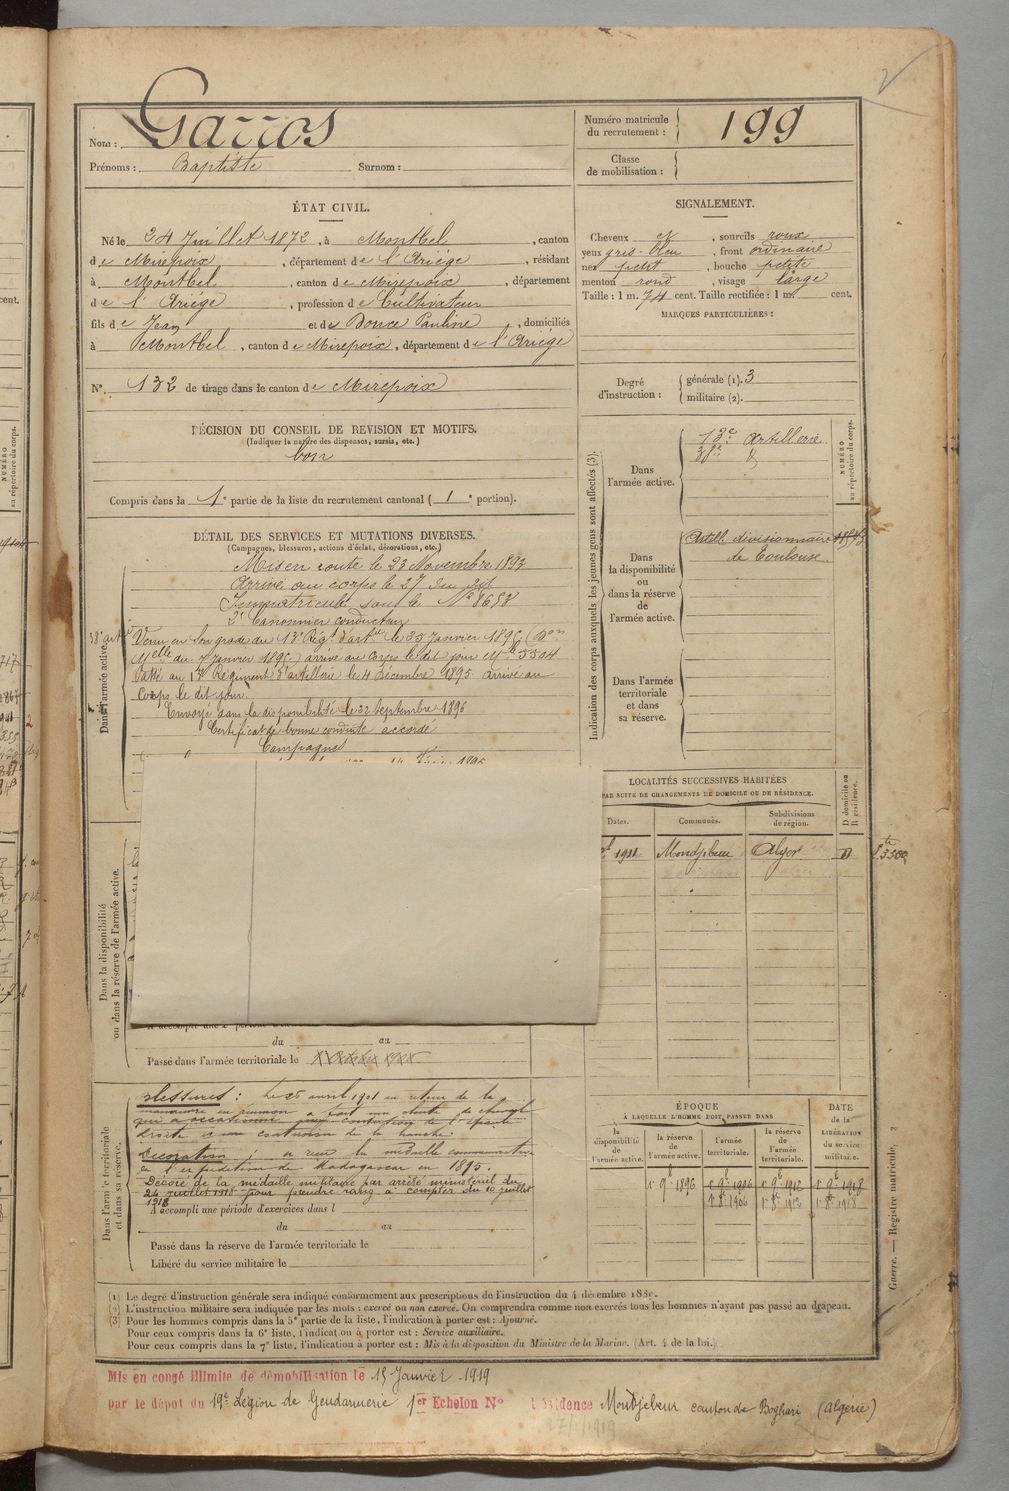 Nom : Garros
Prénoms : Baptiste Surnom :
Numéro matricule du recrutement : 199
Classe de mobilisation :
ÉTAT CIVIL.
Né le 24 Juillet 1872, à Montbel, canton
de Mirepoix, département de l'Ariège, résidant
à Montbel, canton de Mirepoix, département
de l'Ariège, profession de Cultivateur
fils de Jean et de Doumce Pauline, domiciliés
à Montbel, canton de Mirepoix, département de l'Ariège
N°. 132 de tirage dans le canton de Mirepoix
SIGNALEMENT.
Cheveux et, sourcils roux
yeux gris-bleu, front ordinaire
nez petit, bouche petite
menton rond, visage large
Taille : 1 m. 74 cent. Taille rectifiée : 1 m. cent.
MARQUES PARTICULIÈRES :
Degré d'instruction : générale (1). 3
militaire (2).
DÉCISION DU CONSEIL DE REVISION ET MOTIFS.
(Indiquer la nature des dispenses, sursis, etc.)
bon
Compris dans la 1e partie de la liste du recrutement cantonal ( 1e portion).
DÉTAIL DES SERVICES ET MUTATIONS DIVERSES.
(Campagnes, blessures, actions d'éclat, décorations, etc.)
Mis en route le 23 Novembre 1893
Arrivé au corps le 27 du dit
Immatriculé sous le N° 8658
2e Canonnier conducteur
Venu en son grade du 13e Régt d'artie le 25 Janvier 1895
Melle du 7 Janvier 1895) arrivé au Corps le dit jour Mle 5504
Passé au Régiment d'artillerie le 4 Décembre 1895 arrivé au
Corps le dit jour
Envoyé dans la disponibilité le 22 Septembre 1896
Certificat de bonne conduite accordé
Campagnes
Dans l'armée active.
Indication des corps auxquels les jeunes gens sont affectés (3).
Dans l'armée active.
13e Artillerie
38e
NUMÉRO au répertoire du corps.
Dans la disponibilité ou dans la réserve de l'armée active.
Artill. divisionnaire
de Toulouse
Dans l'armée territoriale et dans sa réserve.
LOCALITÉS SUCCESSIVES HABITÉES
PAR SUITE DE CHANGEMENTS DE DOMICILE OU DE RÉSIDENCE.
Dates. Communes. Subdivisions de région. D domicile ou R résidence.
1911 Moudjebeur Alger D
Dans la disponibilité ou dans la réserve de l'armée active.
du au
Passé dans l'armée territoriale le
Dans l'armée territoriale et dans sa réserve.
Blessures : Le 25 avril 1901 au retour de la
manœuvre en peloton a fait une chute de cheval
qui a occasionné une contusion de l'épaule
droite et une contusion de la hanche.
Décoration : a reçu la médaille commémorative
de l'expédition de Madagascar en 1895.
Décoré de la médaille militaire par arrêté ministériel du
24 juillet 1918 pour prendre rang à compter du 10 juillet
1918
A accompli une période d'exercices dans l
du au
Passé dans la réserve de l'armée territoriale le
Libéré du service militaire le
ÉPOQUE
À LAQUELLE L'HOMME DOIT PASSER DANS
la disponibilité de l'armée active. la réserve de l'armée active. l'armée territoriale. la réserve de l'armée territoriale.
DATE de la LIBÉRATION du service militaire.
1r 9b 1896 1r 9b 1906 1r 9b 1912 1r 9b 1918
1r 8b 1906 1r 8b 1912 1r 8b 1918
Guerre. — Registre matricule. 2
(1) Le degré d'instruction générale sera indiqué conformément aux prescriptions de l'instruction du 4 décembre 1889.
(2) L'instruction militaire sera indiquée par les mots : exercé ou non exercé. On comprendra comme non exercés tous les hommes n'ayant pas passé au drapeau.
(3) Pour les hommes compris dans la 5e partie de la liste, l'indication à porter est : Ajourné.
Pour ceux compris dans la 6e liste, l'indication à porter est : Service auxiliaire.
Pour ceux compris dans la 7e liste, l'indication à porter est : Mis à la disposition du Ministre de la Marine. (Art. 4 de la loi.)
Mis en congé illimité de démobilisation le 15 Janvier 1919
par le dépôt du 19e Légion de Gendarmerie 1er Echelon N° Résidence Moudjebeur canton de Boghari (Algérie)